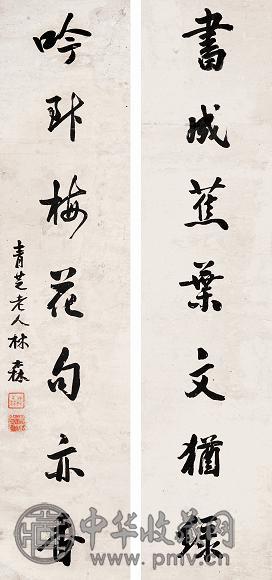 書成蕉葉文猶綠
吟到梅花句亦香
青芝老人林森
中华收藏网
www.pmv.cn